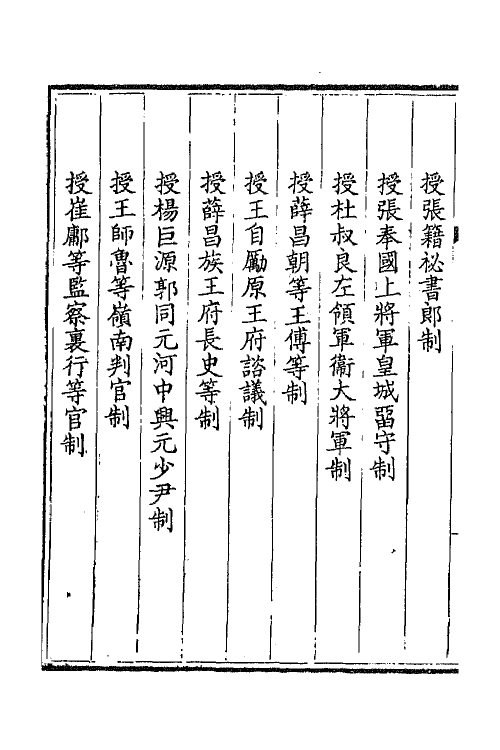 授張籍祕書郎制
授張奉國上將軍皇城留守制
授杜叔良左領軍衞大將軍制
授薛昌朝等王傅等制
授王自勵原王府諮議制
授薛昌族王府長史等制
授楊巨源郭同元河中興元少尹制
授王師魯等嶺南判官制
授崔鄜等監察裏行等官制